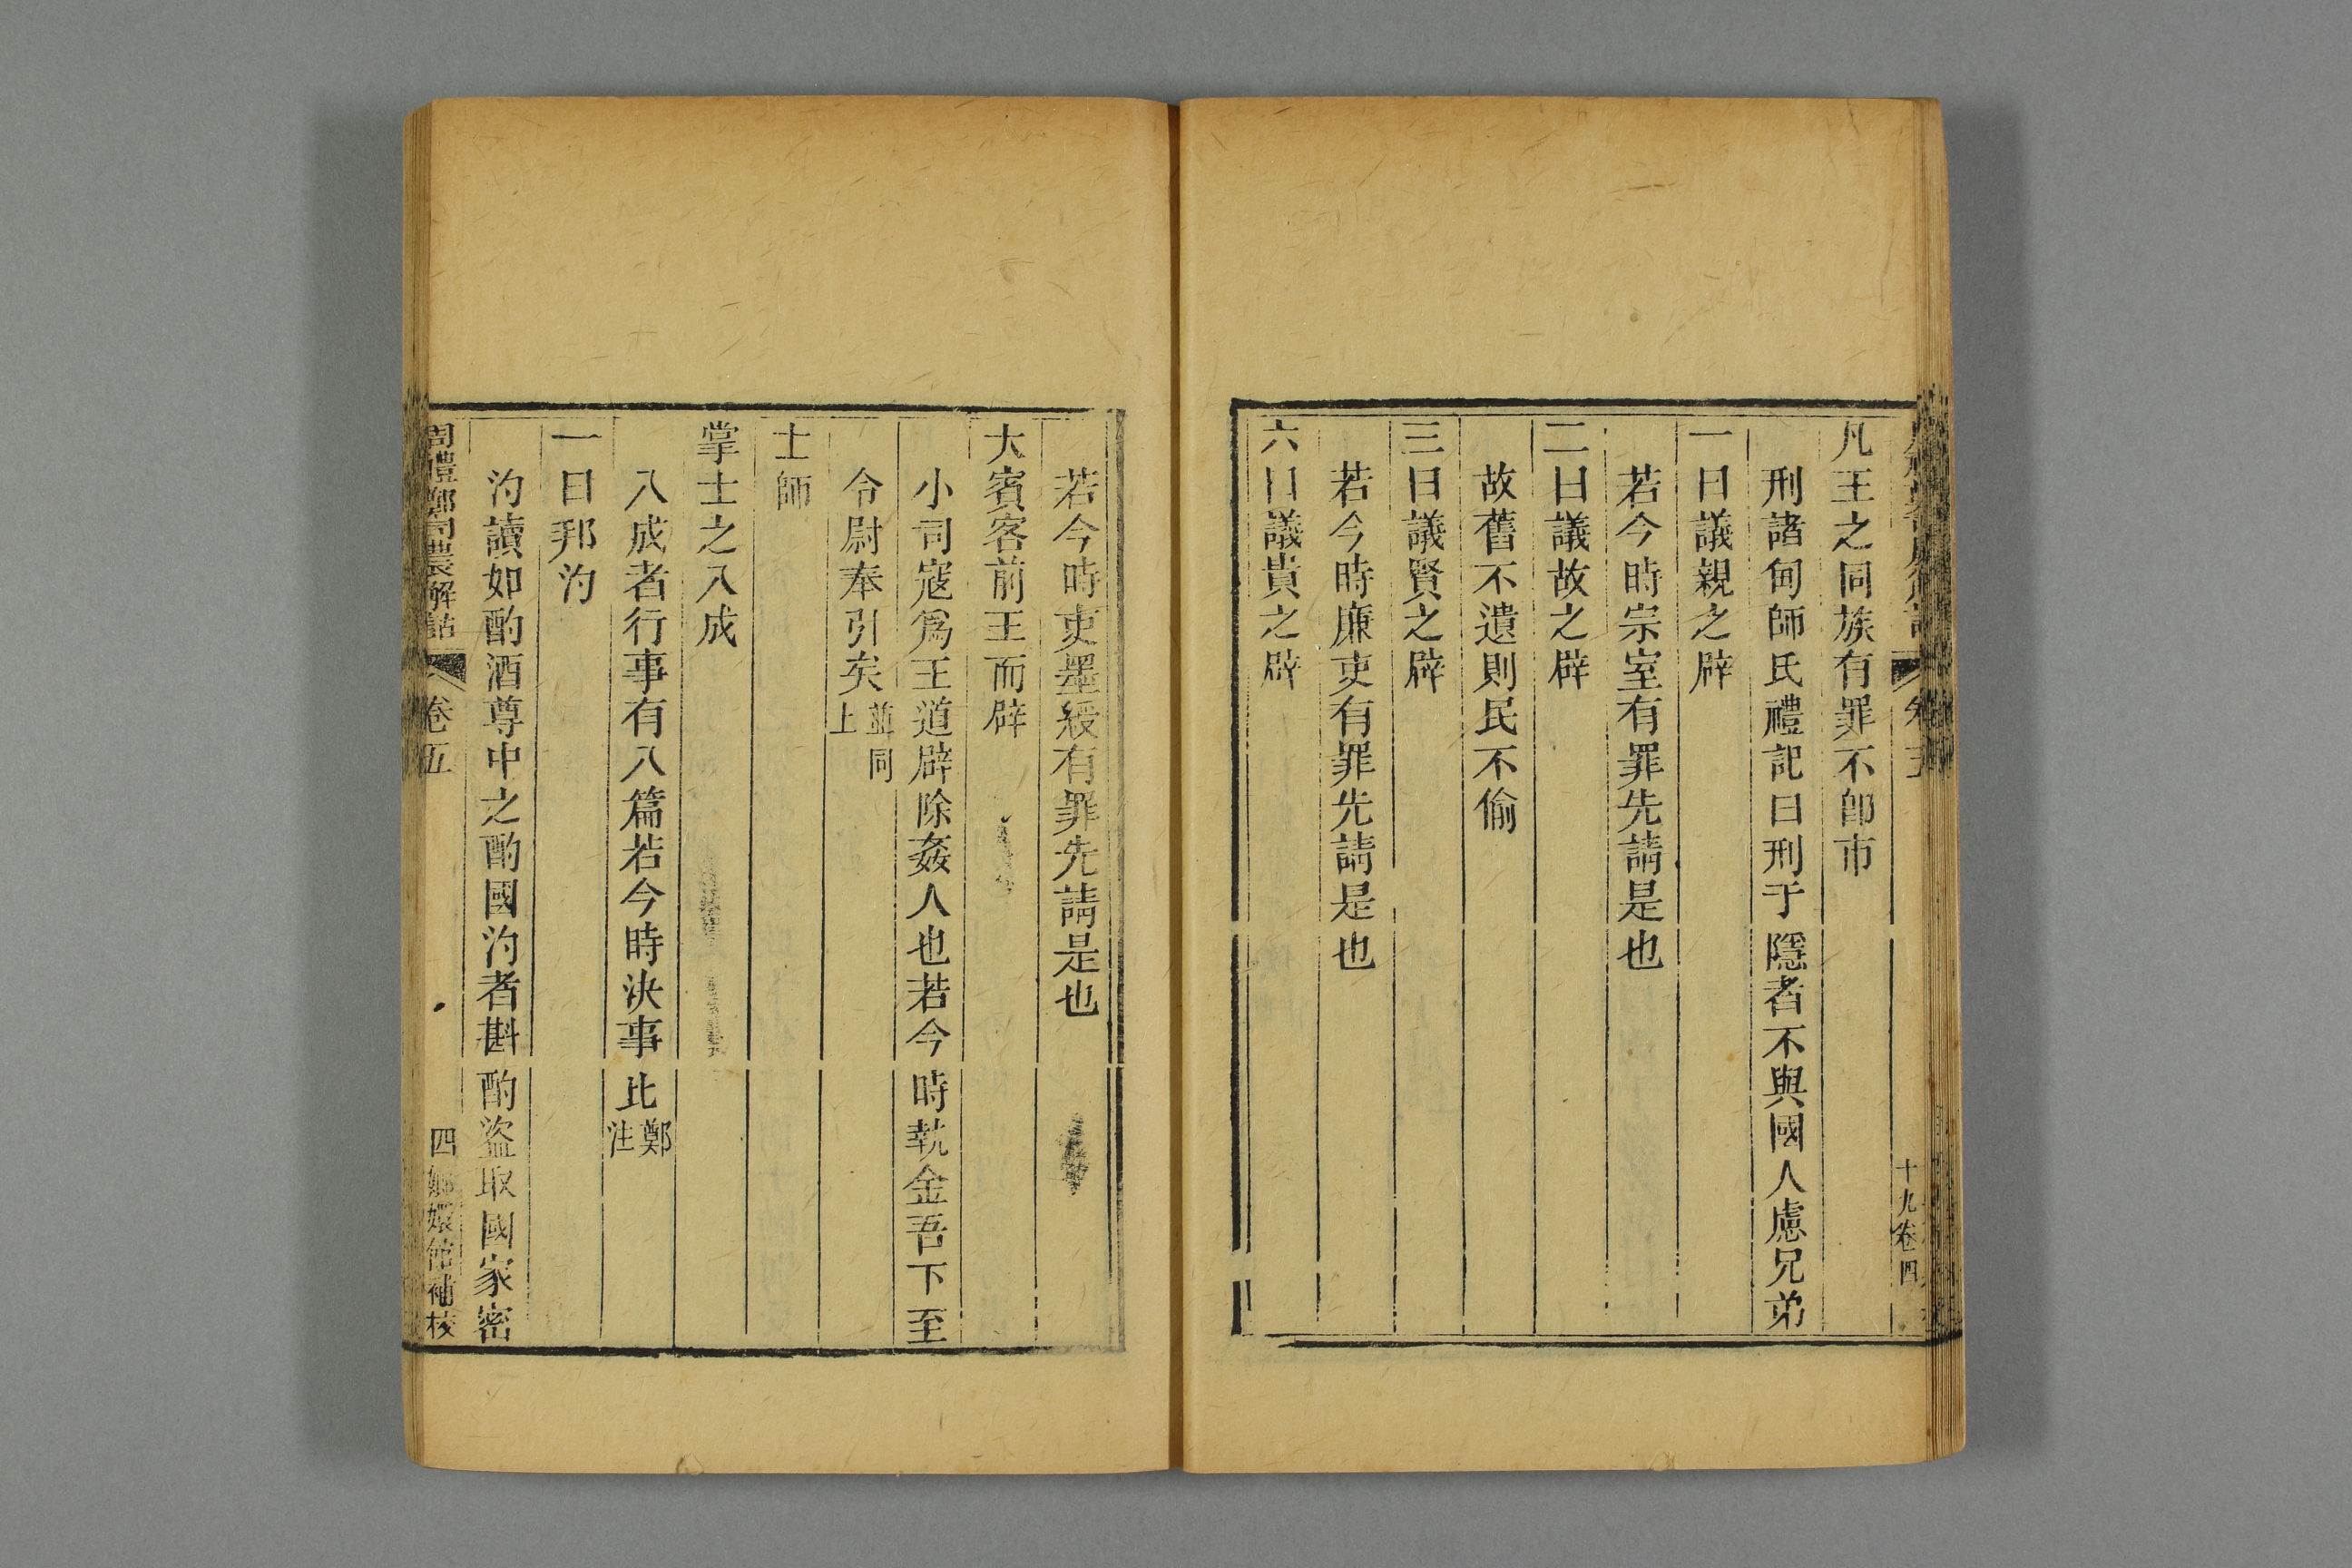 凡王之同族有罪不卽市
刑諸甸師氏禮記曰刑于隱者不與國人慮兄弟
一曰議親之辟
若今時宗室有罪先請是也
二曰議故之辟
故舊不遺則民不偷
三曰議賢之辟
若今時廉吏有罪先請是也
六曰議貴之辟
十九卷四
若今時吏墨綬有罪先請是也
大賓客前王而辟
小司寇爲王道辟除姦人也若今時執金吾下至
令尉奉引矣並同上
士師
掌士之八成
八成者行事有八篇若今時決事比鄭注
一曰邦汋
汋讀如酌酒尊中之酌國汋者斟酌盜取國家密
周禮鄭司農解詁 卷五 四 嫏嬛館補校